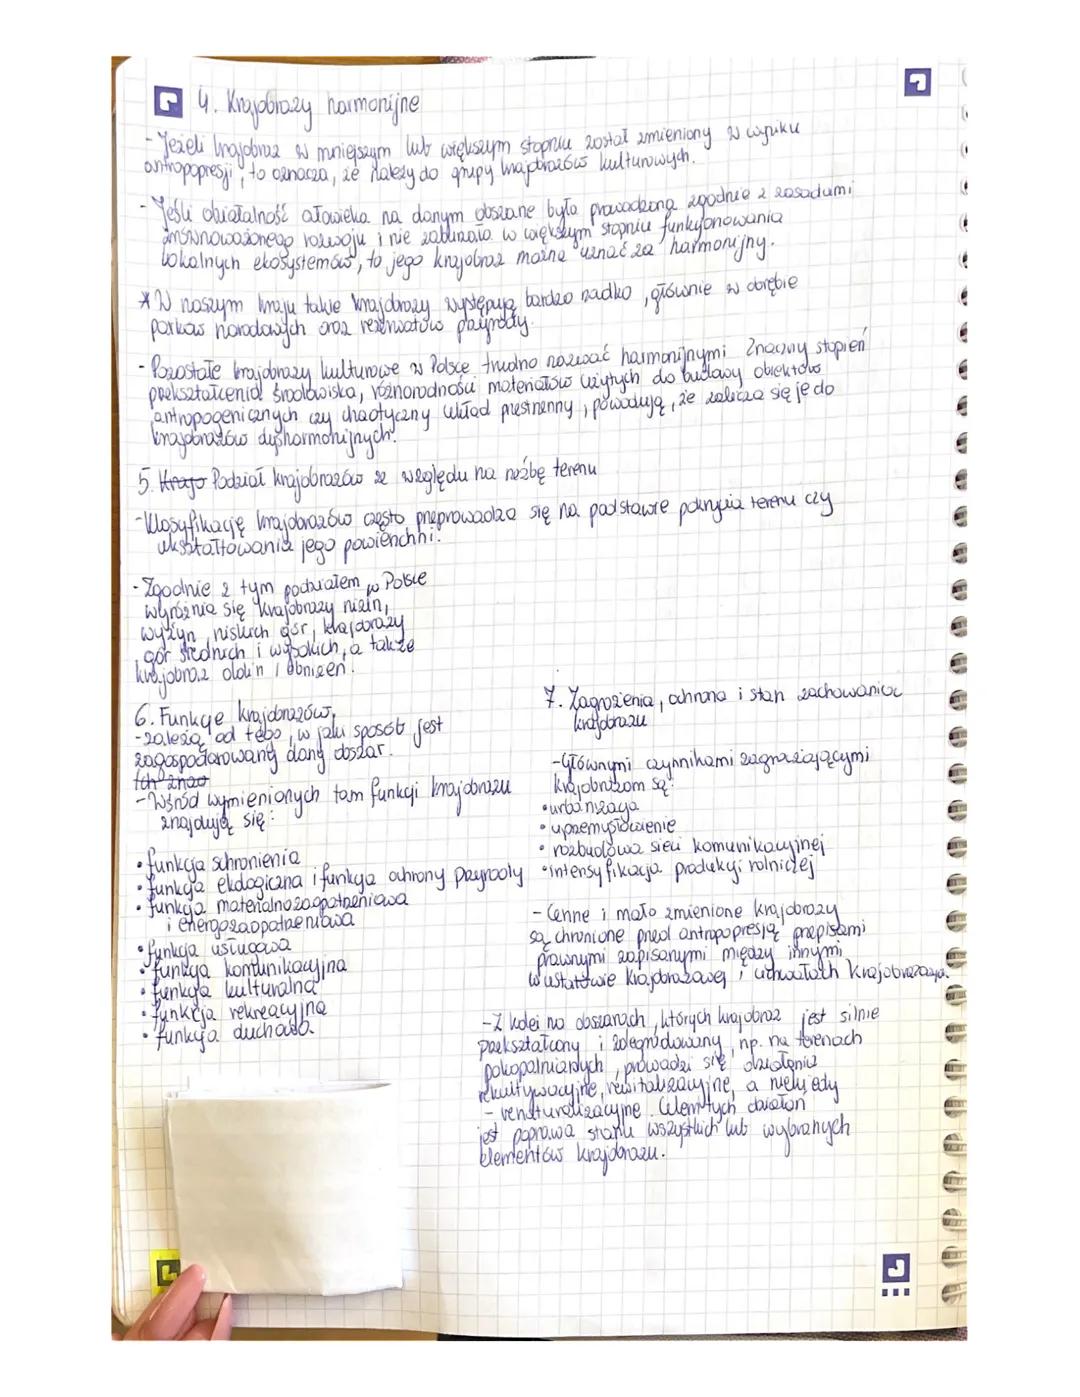 4. Krajobrazy harmonijne
- Jeżeli krajobraz w mniejszym lub większym stopniu został zmieniony w wyniku
antropopresji, to oznacza, że należy do grupy krajobrazów kulturowych.
- Jeśli działalność człowieka na danym obszarze była prowadzona zgodnie z zasadami
zrównoważonego rozwoju i nie zaburzała w większym stopniu funkcjonowania
lokalnych ekosystemów, to jego krajobraz można uznać za harmonijny.
* W naszym kraju takie krajobrazy występują bardzo rzadko, głównie w obrębie
parków narodowych oraz rezerwatów przyrody.
- Pozostałe krajobrazy kulturowe w Polsce trudno nazwać harmonijnymi Znaczny stopień
przekształcenia środowiska, różnorodności materiałów użytych do budowy obiektów
antropogenicznych czy chaotyczny układ przestrzenny, powodują, że zalicza się je do
krajobrazów dysharmonijnych.
5. Krajo Podział krajobrazów ze względu na rzeźbę terenu
- Klasyfikację krajobrazów często przeprowadza się na podstawie pokrycia terenu czy
ukształtowania jego powierzchni.
- Zgodnie z tym podziałem w Polsce
wyróżnia się krajobrazy nizin,
wyżyn, niskich gór, krajobrazy
gór średnich i wysokich, a także
krajobraz dolin i obniżeń.
6. Funkcje krajobrazów.
- zależą od tego, w jaki sposób jest
zagospodarowany dany obszar.
Ich znac
- Wśród wymienionych tam funkcji krajobrazu
znajdują się:
• funkcja schronienia
• funkcja ekologiczna i funkcja ochrony przyrody
• funkcja materialnozaopatrzeniowa
i energozaopatrzeniowa
• funkcja usługowa
• funkcja komunikacyjna
• funkcja kulturalna
• funkcja rekreacyjna
• funkcja duchowa.
7. Zagrożenia, ochrona i stan zachowania
krajobrazu
- Głównymi czynnikami zagrażającymi
krajobrazom są:
• urbanizacja
• uprzemysłowienie
• rozbudowa sieci komunikacyjnej
• intensyfikacja produkcji rolniczej
- Cenne i mało zmienione krajobrazy
są chronione przed antropopresją przepisami
prawnymi zapisanymi między innymi
w ustawie krajobrazowej i uchwałach krajobrazowych.
- Z kolei na obszarach, których krajobraz jest silnie
przekształcony i zdegradowany, np. na terenach
pokopalnianych, prowadzi się działania
rekultywacyjne, rewitalizacyjne, a niekiedy
- renaturalizacyjne. Celem tych działań
jest poprawa stanu wszystkich lub wybranych
elementów krajobrazu.